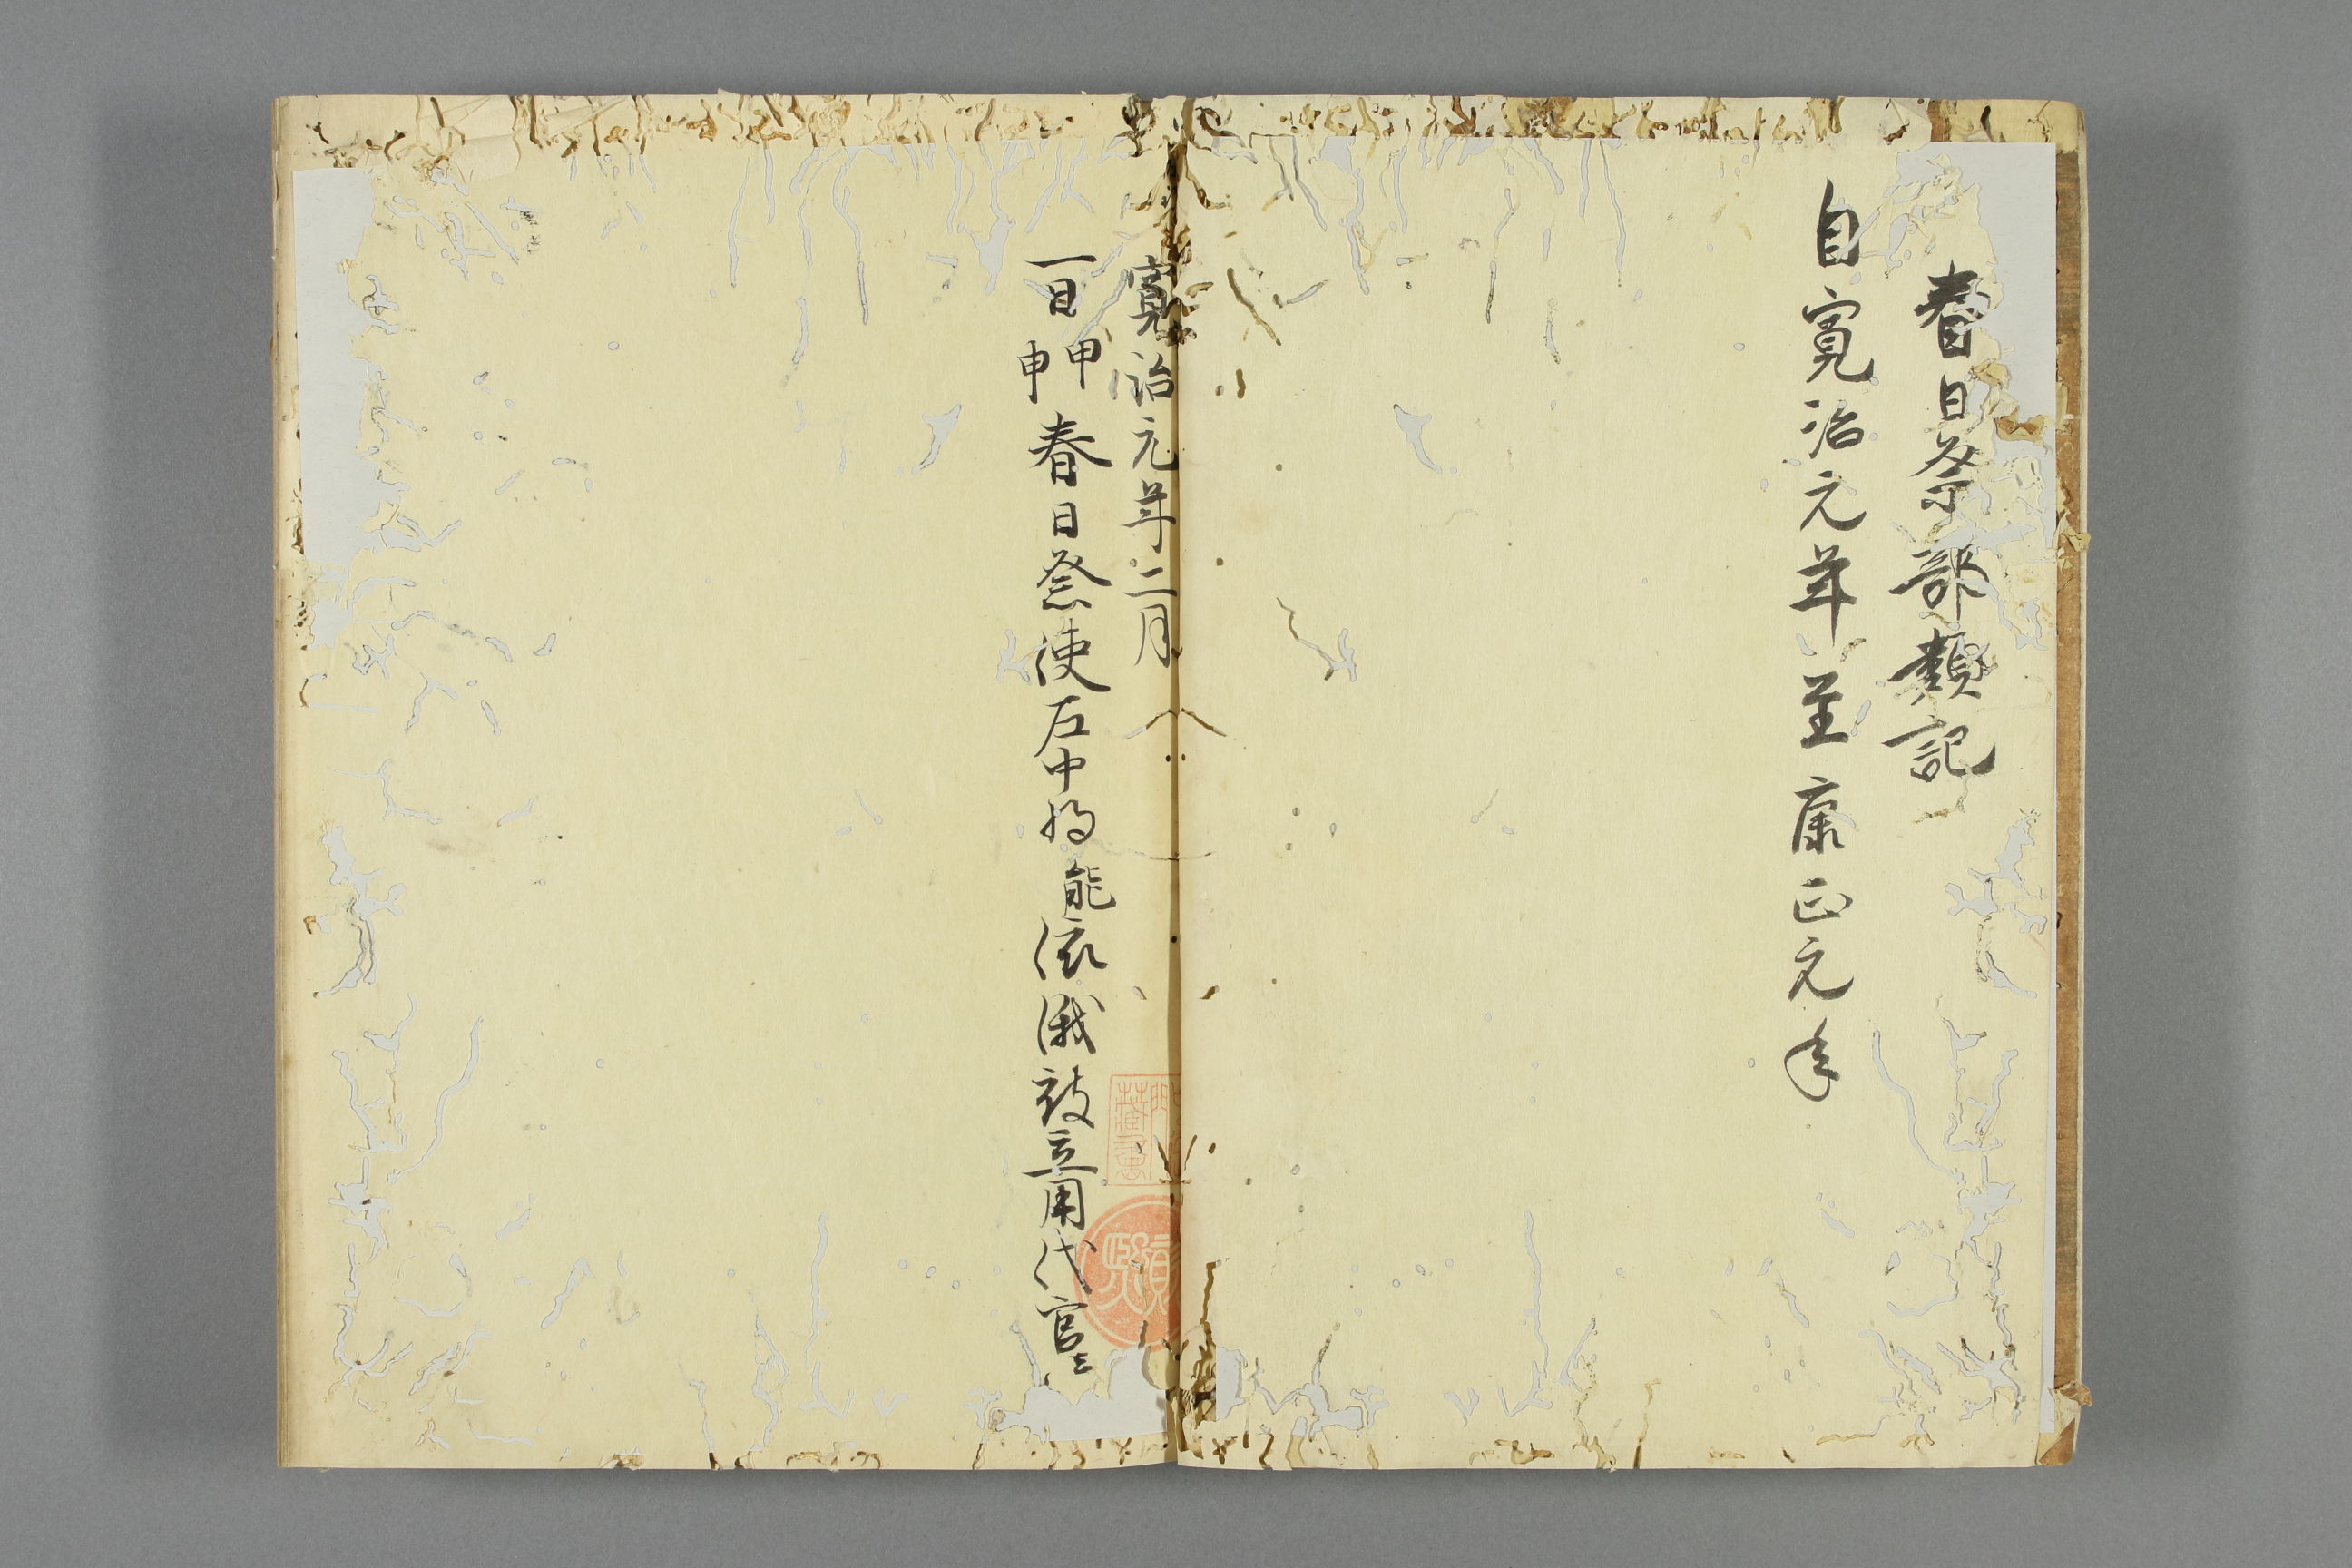 春日祭部類記
自寛治元年至康正元年
寛治元年二月
一日甲申春日祭使左中将能俄被立用代官云々
蔵書